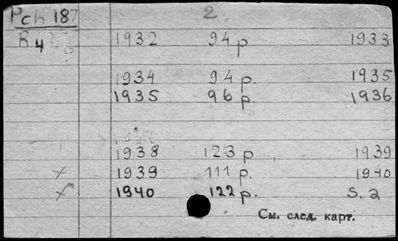 Рсн 187 2.
R4 1932 94 р 1933
1934 94 р. 1935
1935 96 р. 1936
1938 123 р 1939
x 1939 111 р. 1940
x 1940 122 р. s. a
См. след. карт.